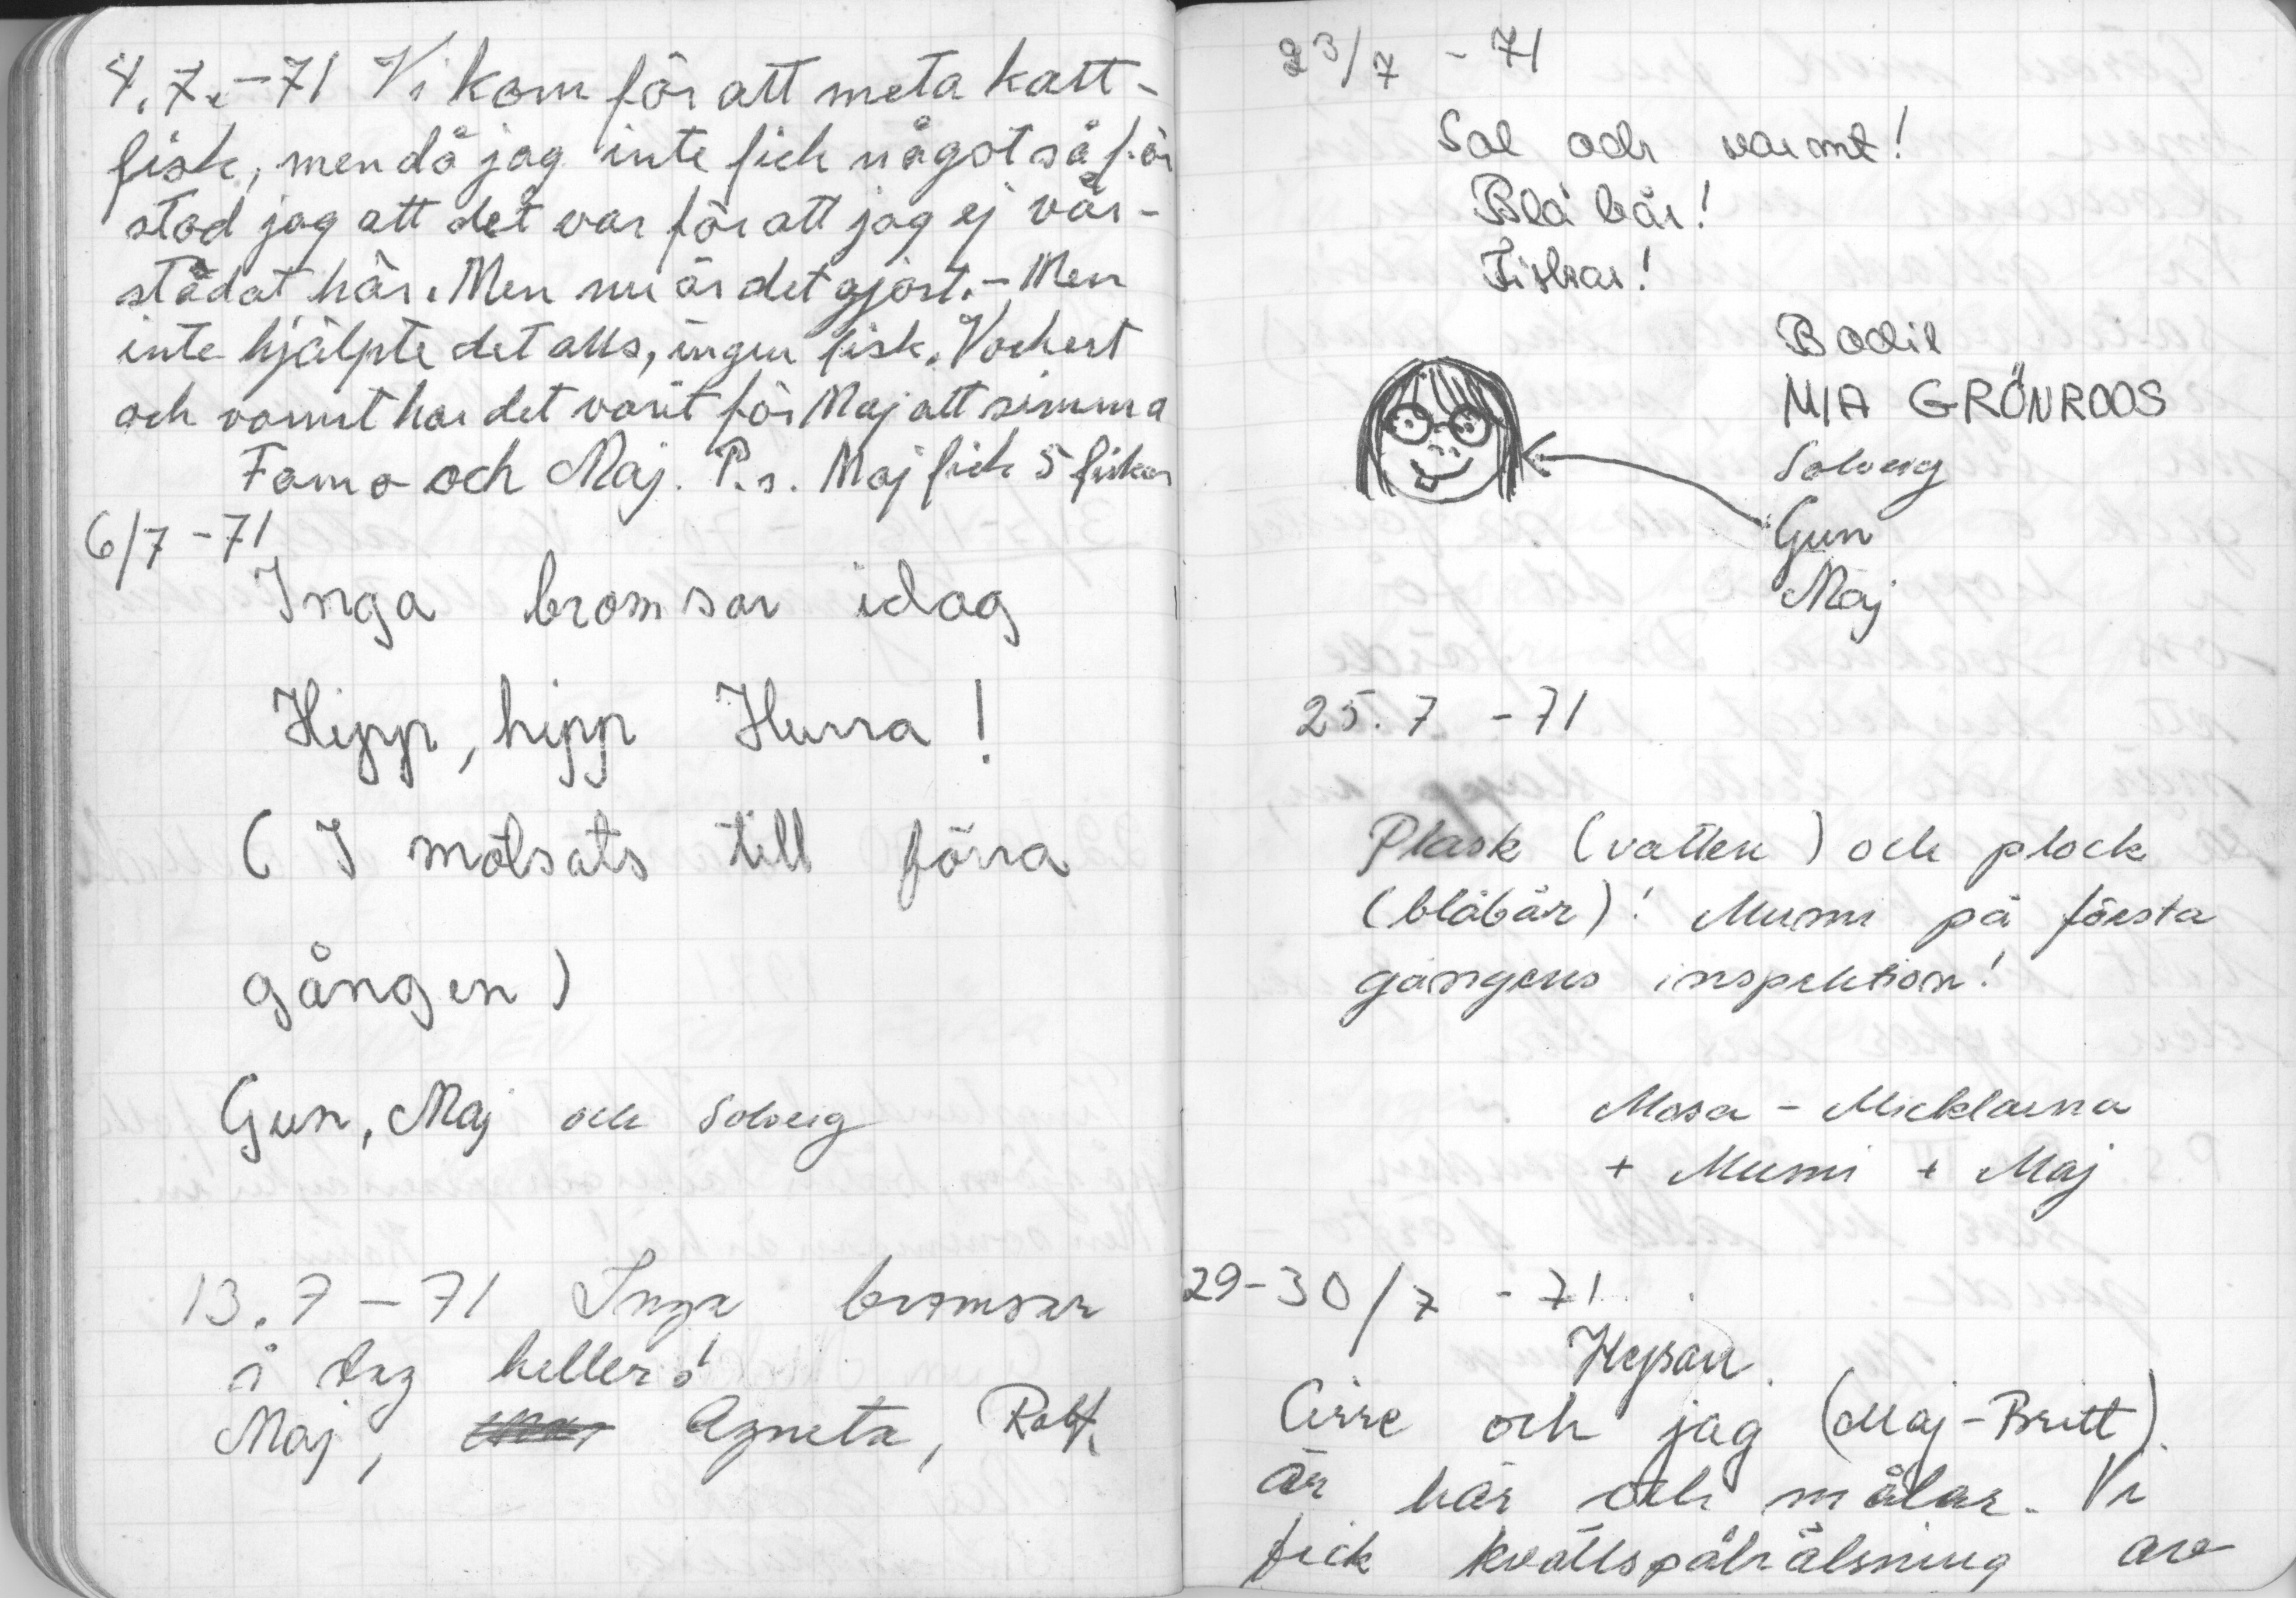 4.7.-71 Vi kom för att meta katt-
fisk, men då jag inte fick något så för
stod jag att det var för att jag ej vår-
städat här. Men nu är det gjort. - Men
inte hjälpte det alls, ingen fisk. Vackert
och varmt har det varit för Maj att simma
Famo och Maj. P.s. Maj fick 5 fiskar
6/7 -71
Inga bromsar idag
Hipp, hipp Hurra!
( I motsats till förra
gången)
Gun, Maj och Solveig
13.7-71 Inga bromsar
i dag heller!
Maj, Agneta, Rolf.
23/7 -71
Sol och varmt!
Blåbär!
Fiskar!
Bodil
MIA GRÖNROOS
Solveig
Gun
Maj
25.7 -71
Plask (vatten) och plock
(blåbär)! Mumi på första
gångens inspektion!
Mosa - Micklarna
+ Mumi + Maj
29-30/7 -71.
Hejsan
Cirre och jag (Maj-Britt)
är här och målar. Vi
fick kvällspåhälsning av